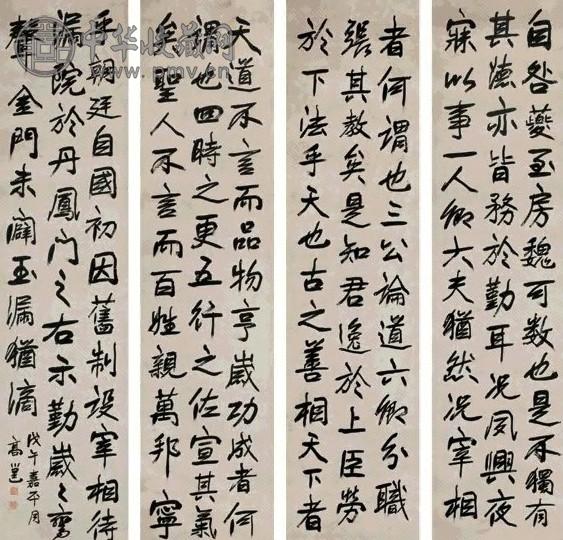 自咎夔至房魏可數也是不獨有
其德亦皆務於勤耳況夙興夜
寐以事一人卿大夫猶然況宰相
者何謂也三公論道六卿分職
張其教矣是知君逸於上臣勞
於下法乎天也古之善相天下者
天道不言而品物亨歲功成者何
謂也四時之更五行之佐宣其氣
矣聖人不言而百姓親萬邦寧
乎朝廷自國初因舊制設宰相待
漏院於丹鳳門之右示勤歲々鸞
聲金門未闢玉漏猶滴
戊午嘉平月
高邕
中华收藏网
www.pmv.cn